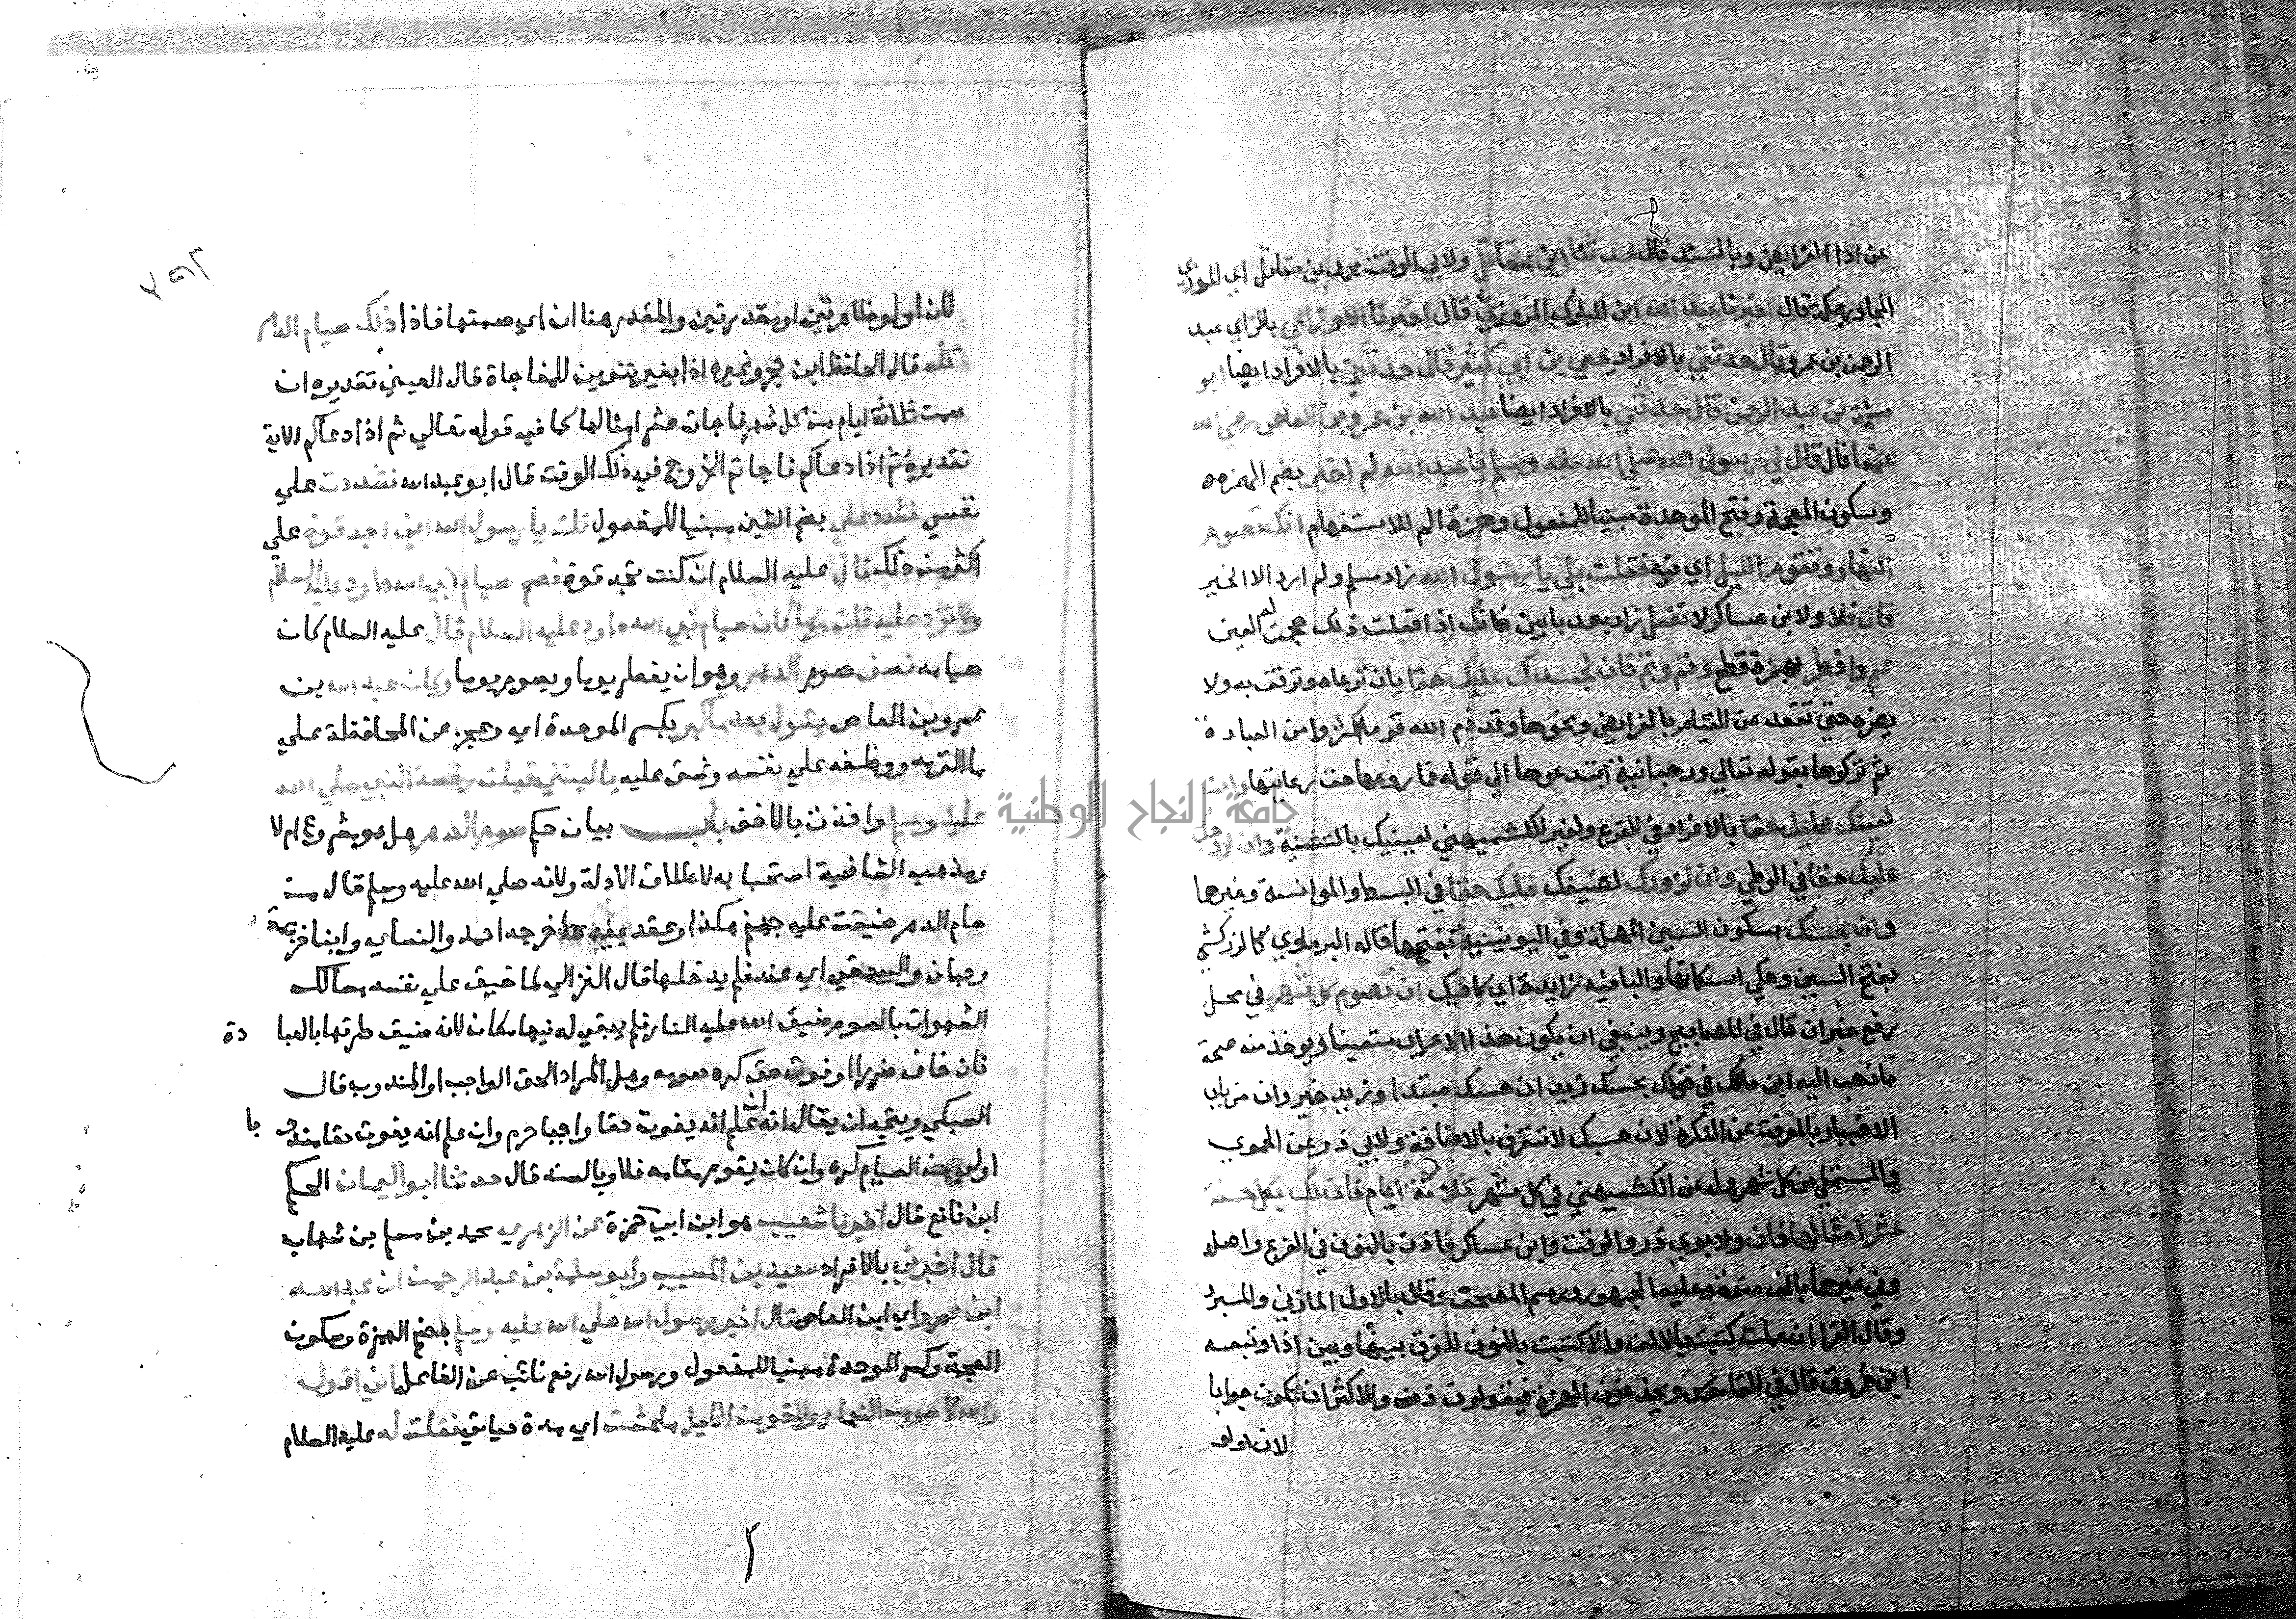 عن ادا الفرايض وبالسند قال حدثنا ابن مقاتل ولابي الوقت محمد بن مقاتل اي المروزي
المجاور بمكة قال اخبرنا عبد الله ابن المبارك المروزي قال اخبرنا الاوزاعي بالزاي عبد
الرحمن بن عمرو قال حدثني بالافراد يحيي بن ابي كثير قال حدثني بالافراد ايضا ابو
سلمة بن عبد الرحمن قال حدثني بالافراد ايضا عبد الله بن عمرو بن العاص رضي الله
عنهما قال قال لي رسول الله صلي الله عليه وسلم يا عبد الله لم اخبر بضم الهمزة
وسكون المعجمة وفتح الموحدة مبنيا للمفعول وهمزة الم للاستفهام انك تصوم
النهار وتقوم الليل اي فيه فقلت بلي يا رسول الله زاد مسلم ولم ارد الا الخير
قال فلا ولابن عساكر لا تفعل زاد بعد بابين فانك اذا فعلت ذلك هجمت له العين
صم وافطر بهمزة قطع وقم ونم فان لجسدك عليك حقا بان ترعاه وترفق به ولا
يضره حتي تقعد عن القيام بالفرايض ونحوها وقد ذم الله قوما اكثروا من العبادة
ثم تركوها بقوله تعالي ورهبانية ابتدعوها الي قوله فما رعوها حق رعايتها وان
لعينك عليك حقا بالافراد في الفرع ولغير الكشميهني لعينيك بالتثنية وان لزوجك
عليك حقا في الوطي وان لزورك لضيفك عليك حقا في البسط والموانسة وغيرها
وان بحسبك بسكون السين المهملة وفي اليونينية بفتحها قاله البرماوي كالزركشي
بفتح السين وحكي اسكانها والبا فيه زايدة اي كافيك ان تصوم كل شهر في محل
رفع خبر ان قال في المصابيح وينبغي ان يكون هذا الاعراب متعينا ويوخذ منه صحة
ما ذهب اليه ابن مالك في قولك بحسبك زيد ان حسبك مبتدا وزيد خبر وان من باب
الاخبار بالمعرفة عن النكرة لان حسبك لا تتعرف بالاضافة ولابي ذر عن الحموي
والمستملي من كل شهر وله عن الكشميهني في كل شهر ثلاثة ايام فان لك بكل حسنة
عشر امثالها فان ولابوي ذر والوقت وابن عساكر فاذن بالنون في الفرع واصله
وفي غيرها بالف منونة وعليه الجمهور ورسم المصحف وقال بالاول المازني والمبرد
وقال الفرا ان عملت كتبت بالالف والا كتبت بالنون للفرق بينها وبين اذا وتبعه
ابن خروف قال في القاموس ويحذفون الهمزة فيقولون ذن والاكثر ان تكون جوابا
لان او لو
لان او لو ظاهرتين او مقدرتين والمقدر هنا ان اي صمتها فاذا ذلك صيام الدهر
كله قال الحافظ ابن حجر وغيره اذا بغير تنوين للمفاجاة قال العيني تقديره ان
صمت ثلاثة ايام من كل شهر فاجات عشر امثالها كما في قوله تعالي ثم اذا دعاكم الاية
تقديره ثم اذا دعاكم فاجاتم الخروج في ذلك الوقت قال ابو عبد الله فشددت علي
نفسي فشدد علي بضم الشين مبنيا للمفعول قلت يا رسول الله اني اجد قوة علي
اكثر من ذلك قال عليه السلام ان كنت تجد قوة فصم صيام نبي الله داود عليه السلام
ولا تزد عليه قلت وما كان صيام نبي الله داود عليه السلام قال عليه السلام كان
صيامه نصف صوم الدهر وهو ان يفطر يوما ويصوم يوما وكان عبد الله بن
عمرو بن العاص يقول بعد ما كبر بكسر الموحدة اي وعجز عن المحافظة علي
ما التزمه ووظفه علي نفسه وشق عليه ياليتني قبلت رخصة النبي صلي الله
عليه وسلم واخذت بالاخف باب بيان حكم صوم الدهر هل هو مشروع ام لا
ومذهب الشافعية استحبابه لاطلاق الادلة ولانه صلي الله عليه وسلم قال من
صام الدهر ضيقت عليه جهنم هكذا وعقد بيده اخرجه احمد والنسايي وابنا خزيمة
وحبان والبيهقي اي عنه فلم يدخلها قال الغزالي لما ضيق علي نفسه مسالك
الشهوات بالصوم ضيق الله عليه النار فلم يبقي له فيها مكان لانه ضيق طرقها بالعبا دة
فان خاف ضررا او فوت حق كره صومه وهل المراد الحق الواجب او المندوب قال
السبكي ويتجه ان يقال انه ان علم انه يفوت حقا واجبا حرم وان علم انه يفوت حقا مندو با
اولي من الصيام كره وان كان يقوم مقامه فلا وبالسند قال حدثنا ابو اليمان الحكم
ابن نافع قال اخبرنا شعيب هو ابن ابي حمزة عن الزهري محمد بن مسلم بن شهاب
قال اخبرني بالافراد سعيد بن المسيب وابو سلمة بن عبد الرحمن ان عبد الله
ابن عمرو اي ابن العاص قال اخبر رسول الله صلي الله عليه وسلم بضم الهمزة وسكون
المعجمة وكسر الموحدة مبنيا للمفعول ورسول الله رفع نائب عن الفاعل اني اقول
والله لاصومن النهار ولاقومن الليل ما عشت اي مدة حياتي فقلت له عليه السلام